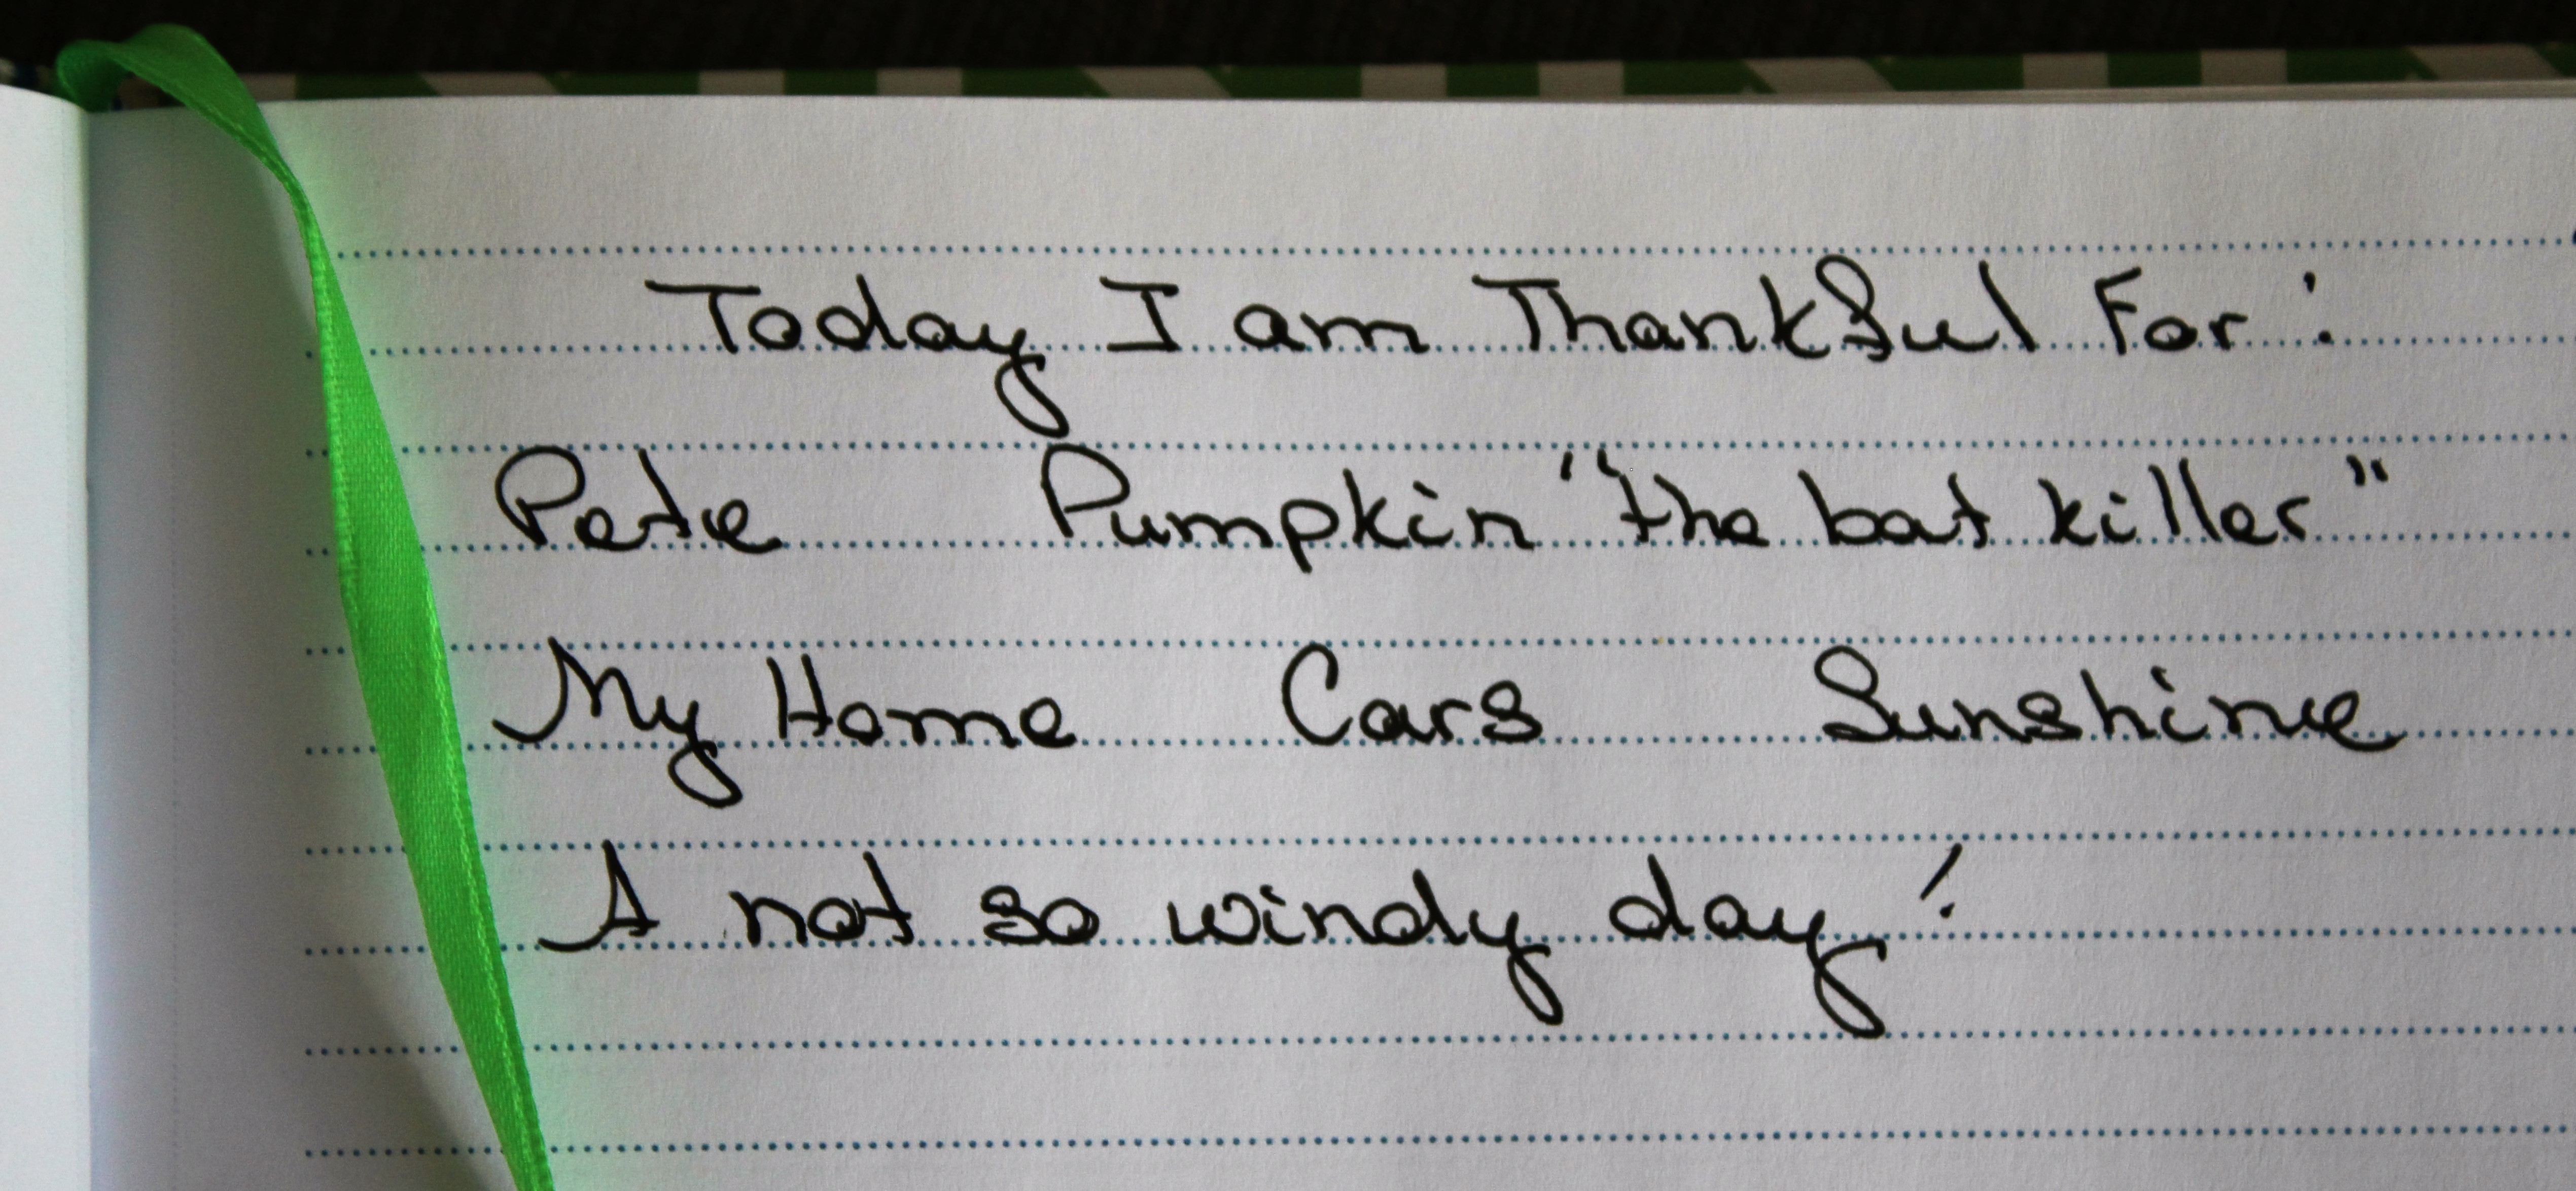 Today I am Thankful For:
Pete Pumpkin "the bat killer"
My Home Cars Sunshine
A not so windy day!